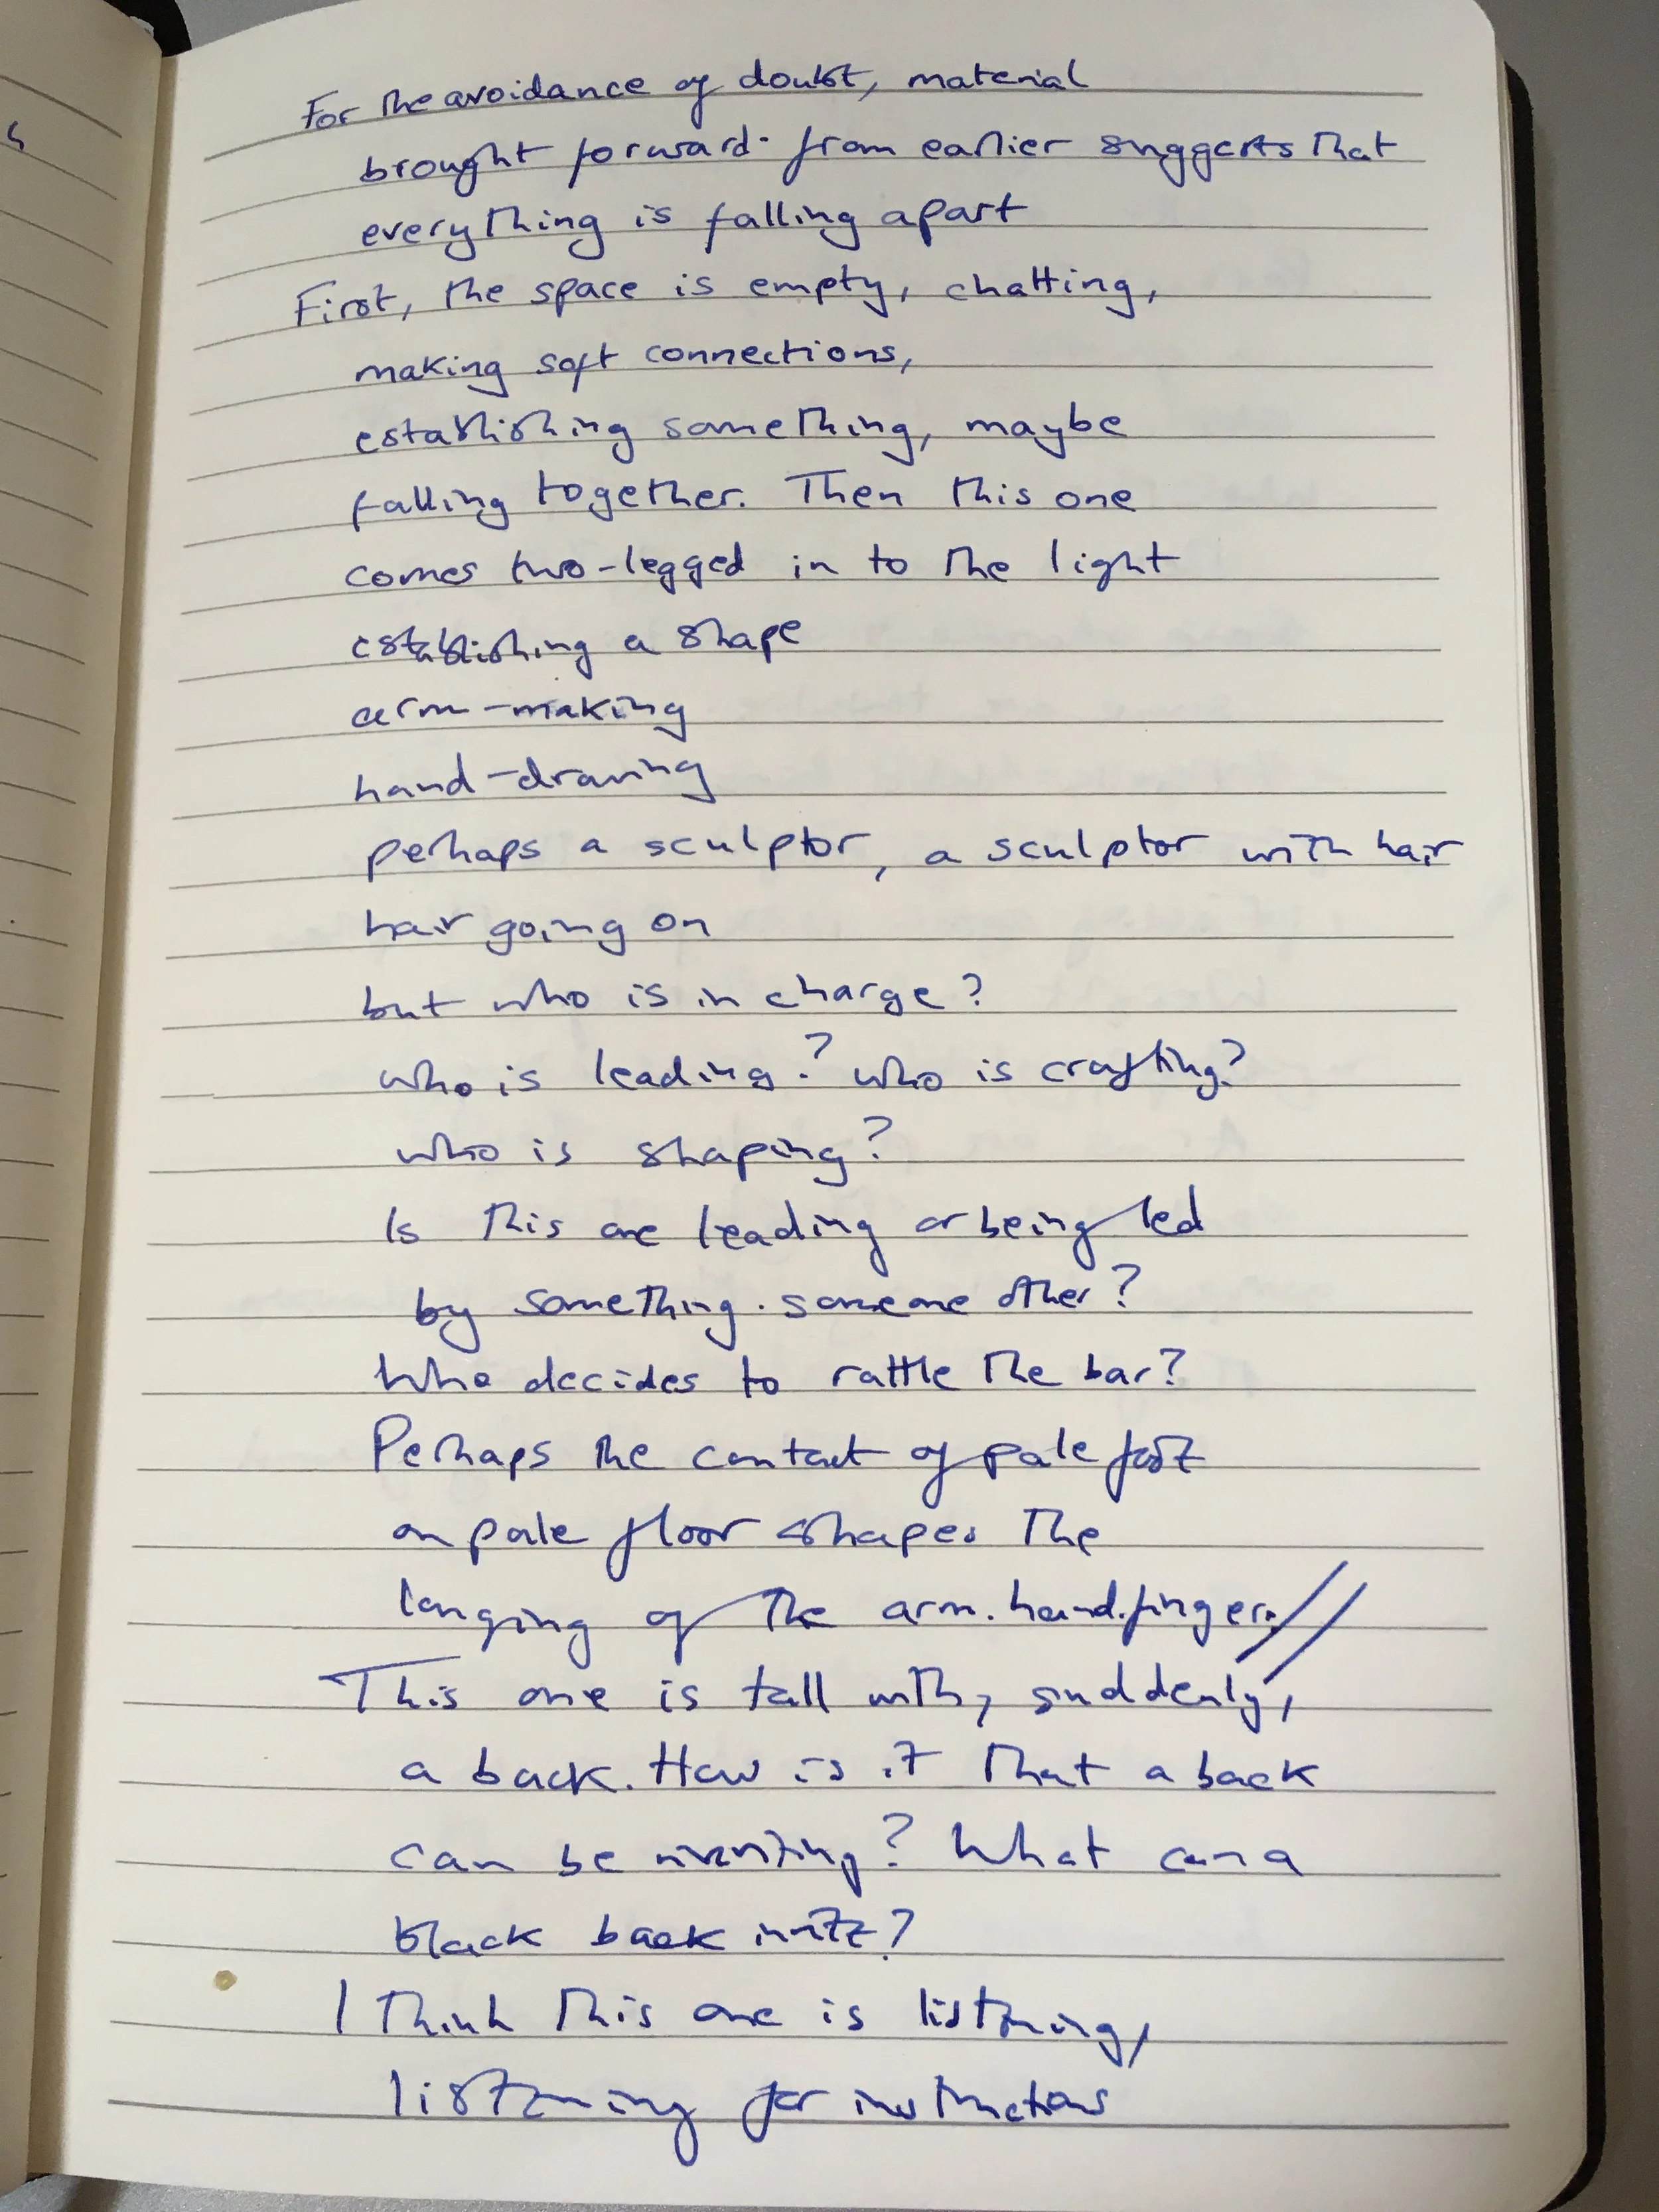 For the avoidance of doubt, material
brought forward from earlier suggests that
everything is falling apart
First, the space is empty, chatting,
making soft connections,
establishing something, maybe
falling together. Then this one
comes two-legged in to the light
establishing a shape
arm-making
hand-drawing
perhaps a sculptor, a sculptor with hair
hair going on
but who is in charge?
who is leading? who is crafting?
who is shaping?
Is this one leading or being led
by something. someone other?
Who decides to rattle the bar?
Perhaps the contact of pale foot
on pale floor shapes the
longing of the arm. hand. fingers //
This one is tall with, suddenly,
a back. How is it that a back
can be inviting? What can a
black back invite?
I think this one is listening,
listening for instructions